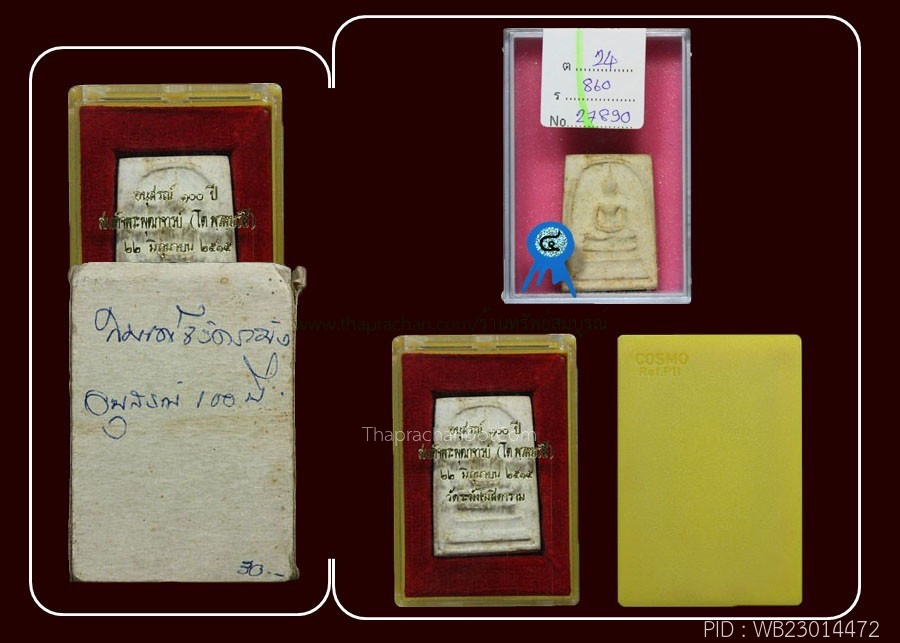 อนุสรณ์ ๑๐๐ ปี
สมเด็จพระพุฒาจารย์ (โต พรหมรังสี)
๒๒ มิถุนายน ๒๕๑๕
อนุสรณ์ 100 ปี
ต ..... 24
ร ..... 860
No. 27890
๔
www.thaprachan.com/ร้านทรัพย์สมบูรณ์
อนุสรณ์ ๑๐๐ ปี
Thaprachan66.com
สมเด็จพระพุฒาจารย์ (โต พรหมรังสี)
๒๒ มิถุนายน ๒๕๑๕
วัดระฆังโฆสิตาราม
COSMO
Ref.P11
PID : WB23014472